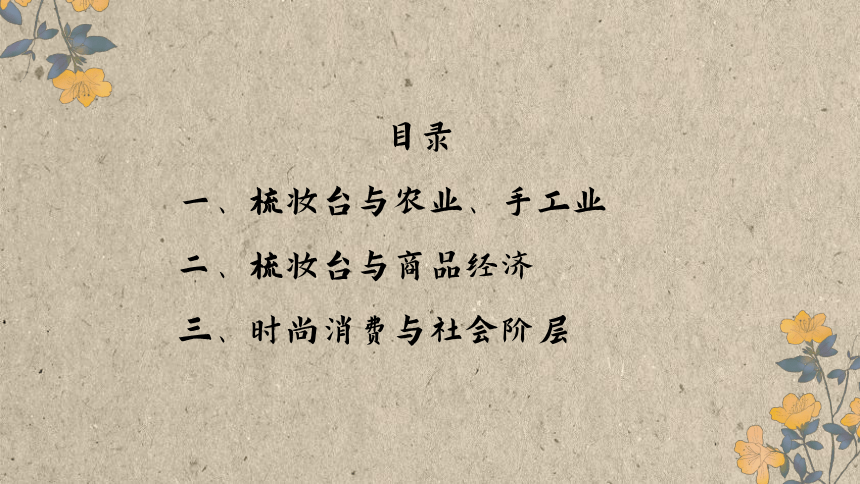 目录
一、梳妆台与农业、手工业
二、梳妆台与商品经济
三、时尚消费与社会阶层